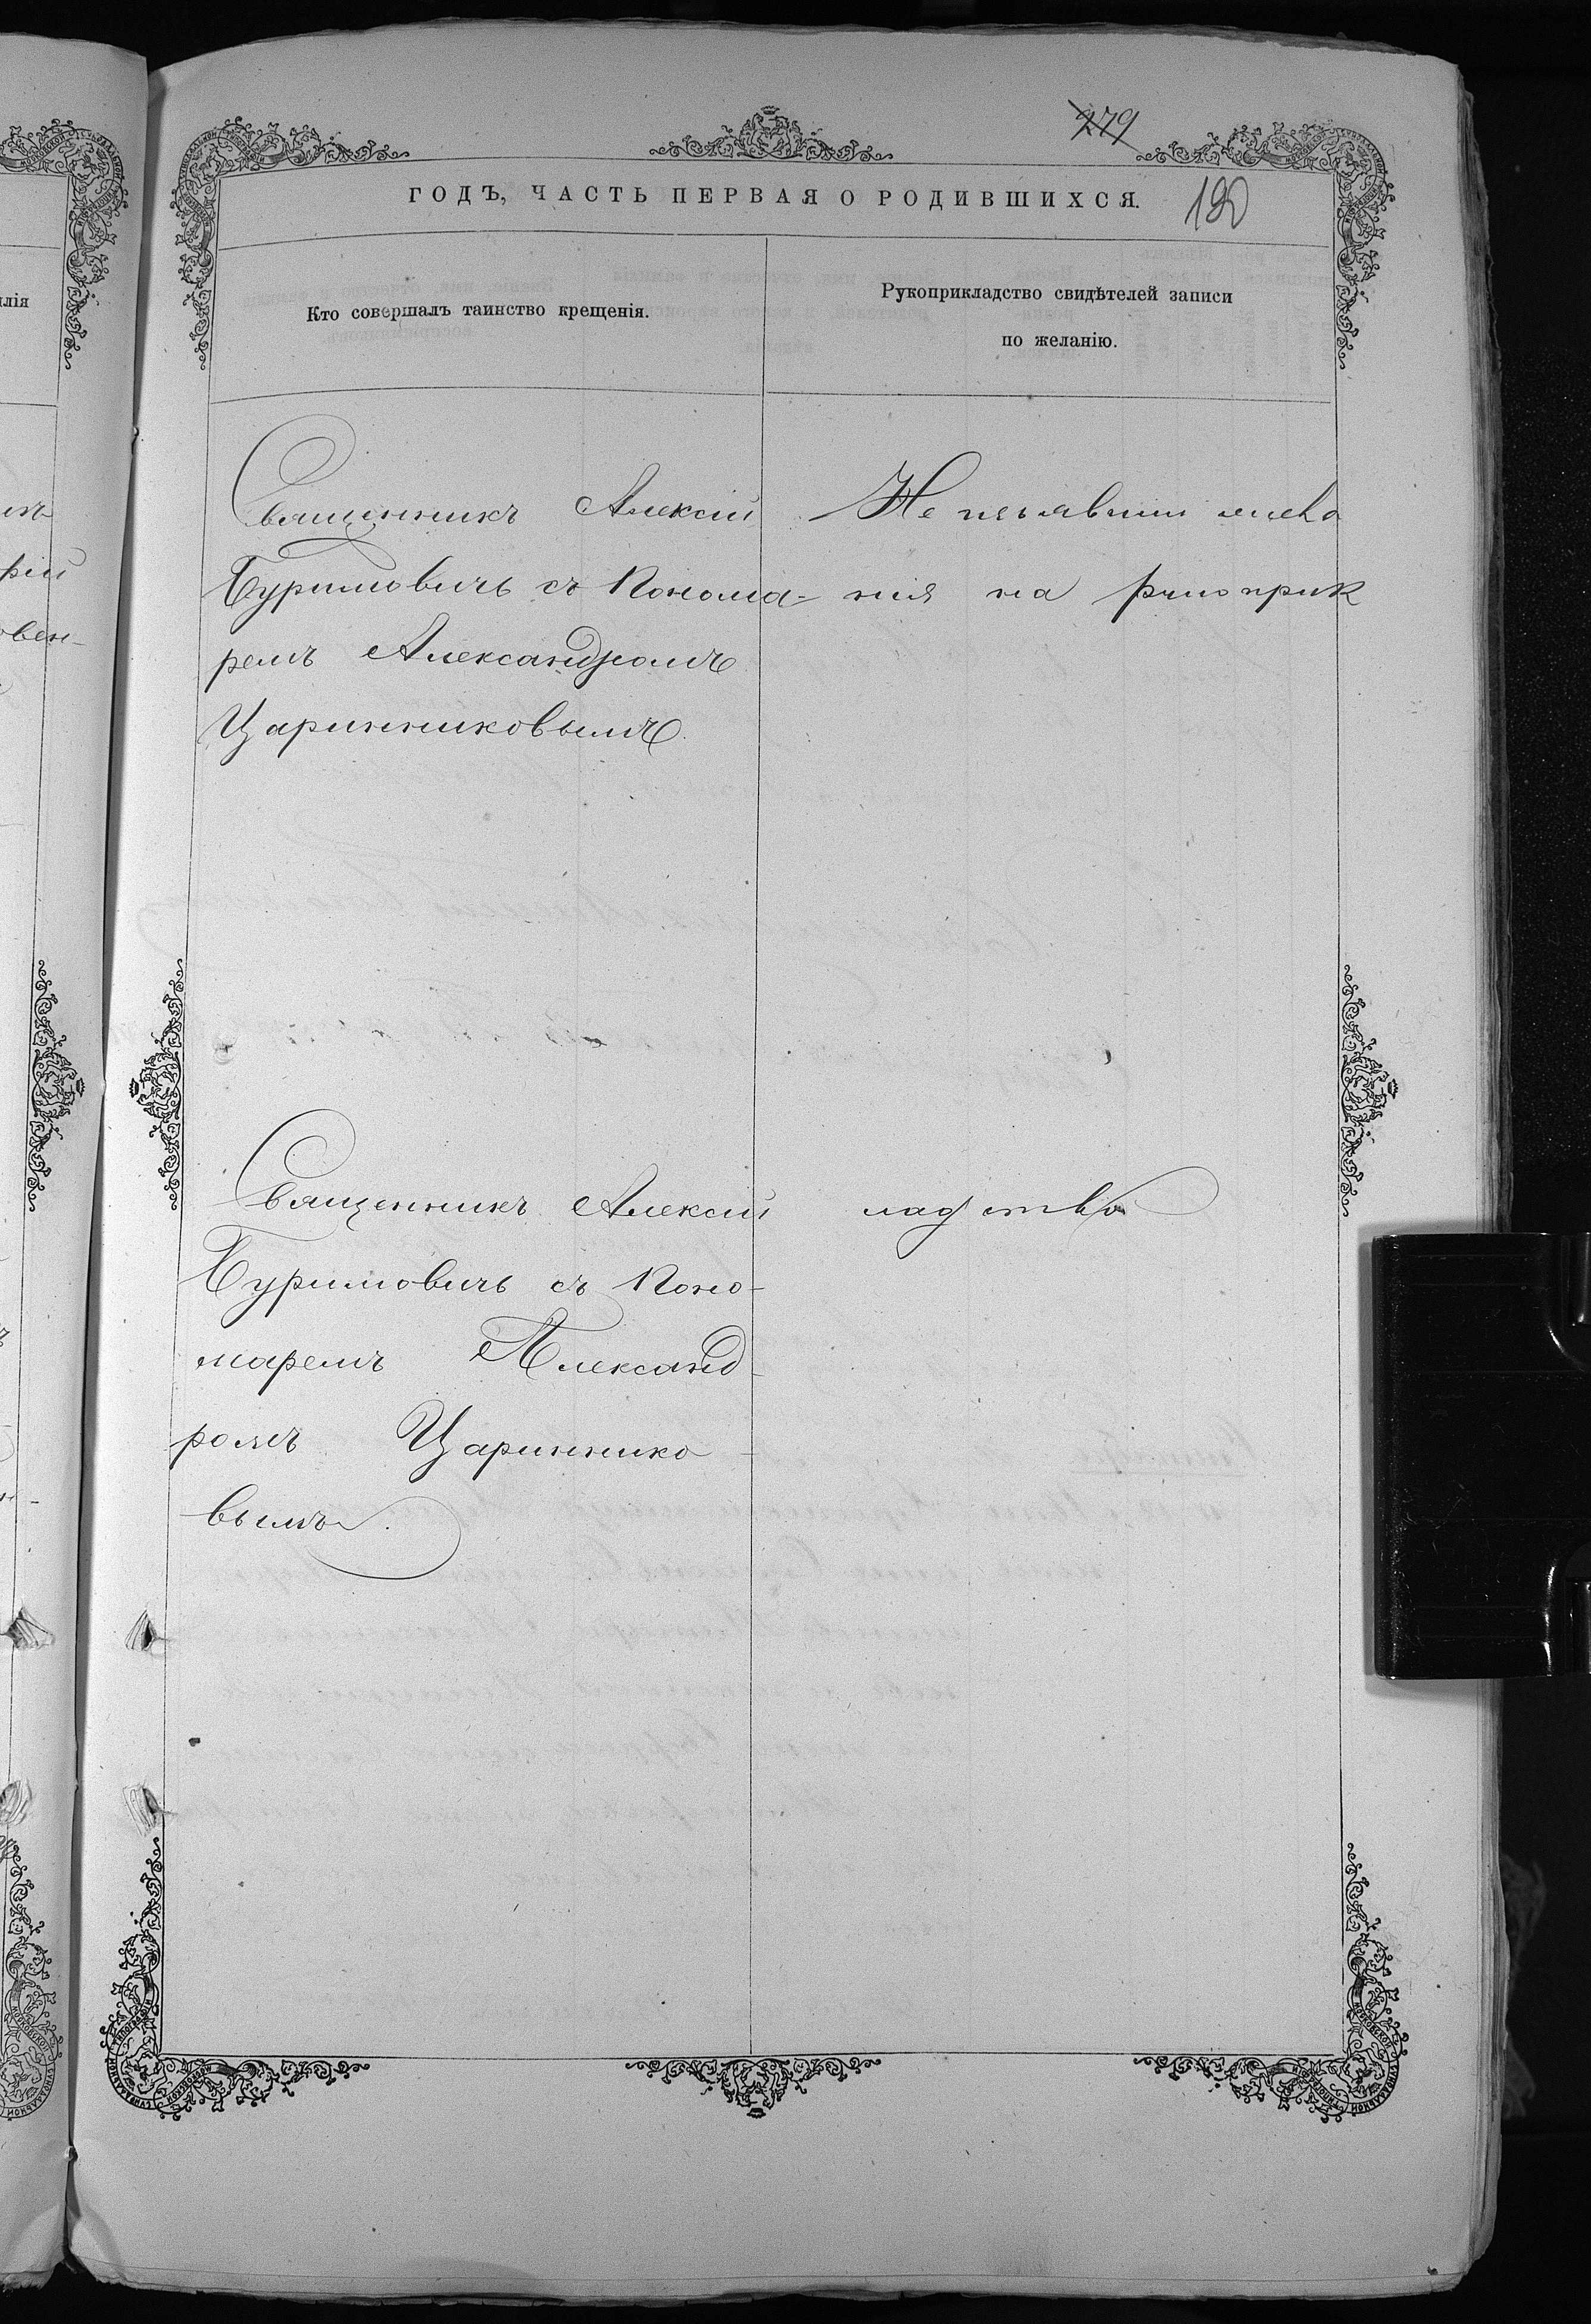 279
ГОДЪ, ЧАСТЬ ПЕРВАЯ О РОДИВШИХСЯ.
190
Кто совершалъ таинство крещенія.
Рукоприкладство свидѣтелей записи
по желанію.
Священникъ Алексій
Буримовичъ съ Понома-
ремъ Александромъ
Царинниковымъ.
Не
нія на рукоприк
Священникъ Алексій
Буримовичъ съ Поно-
маремъ Александ-
ромъ Цариннико-
вымъ.
ладство
лія
рій
овен-